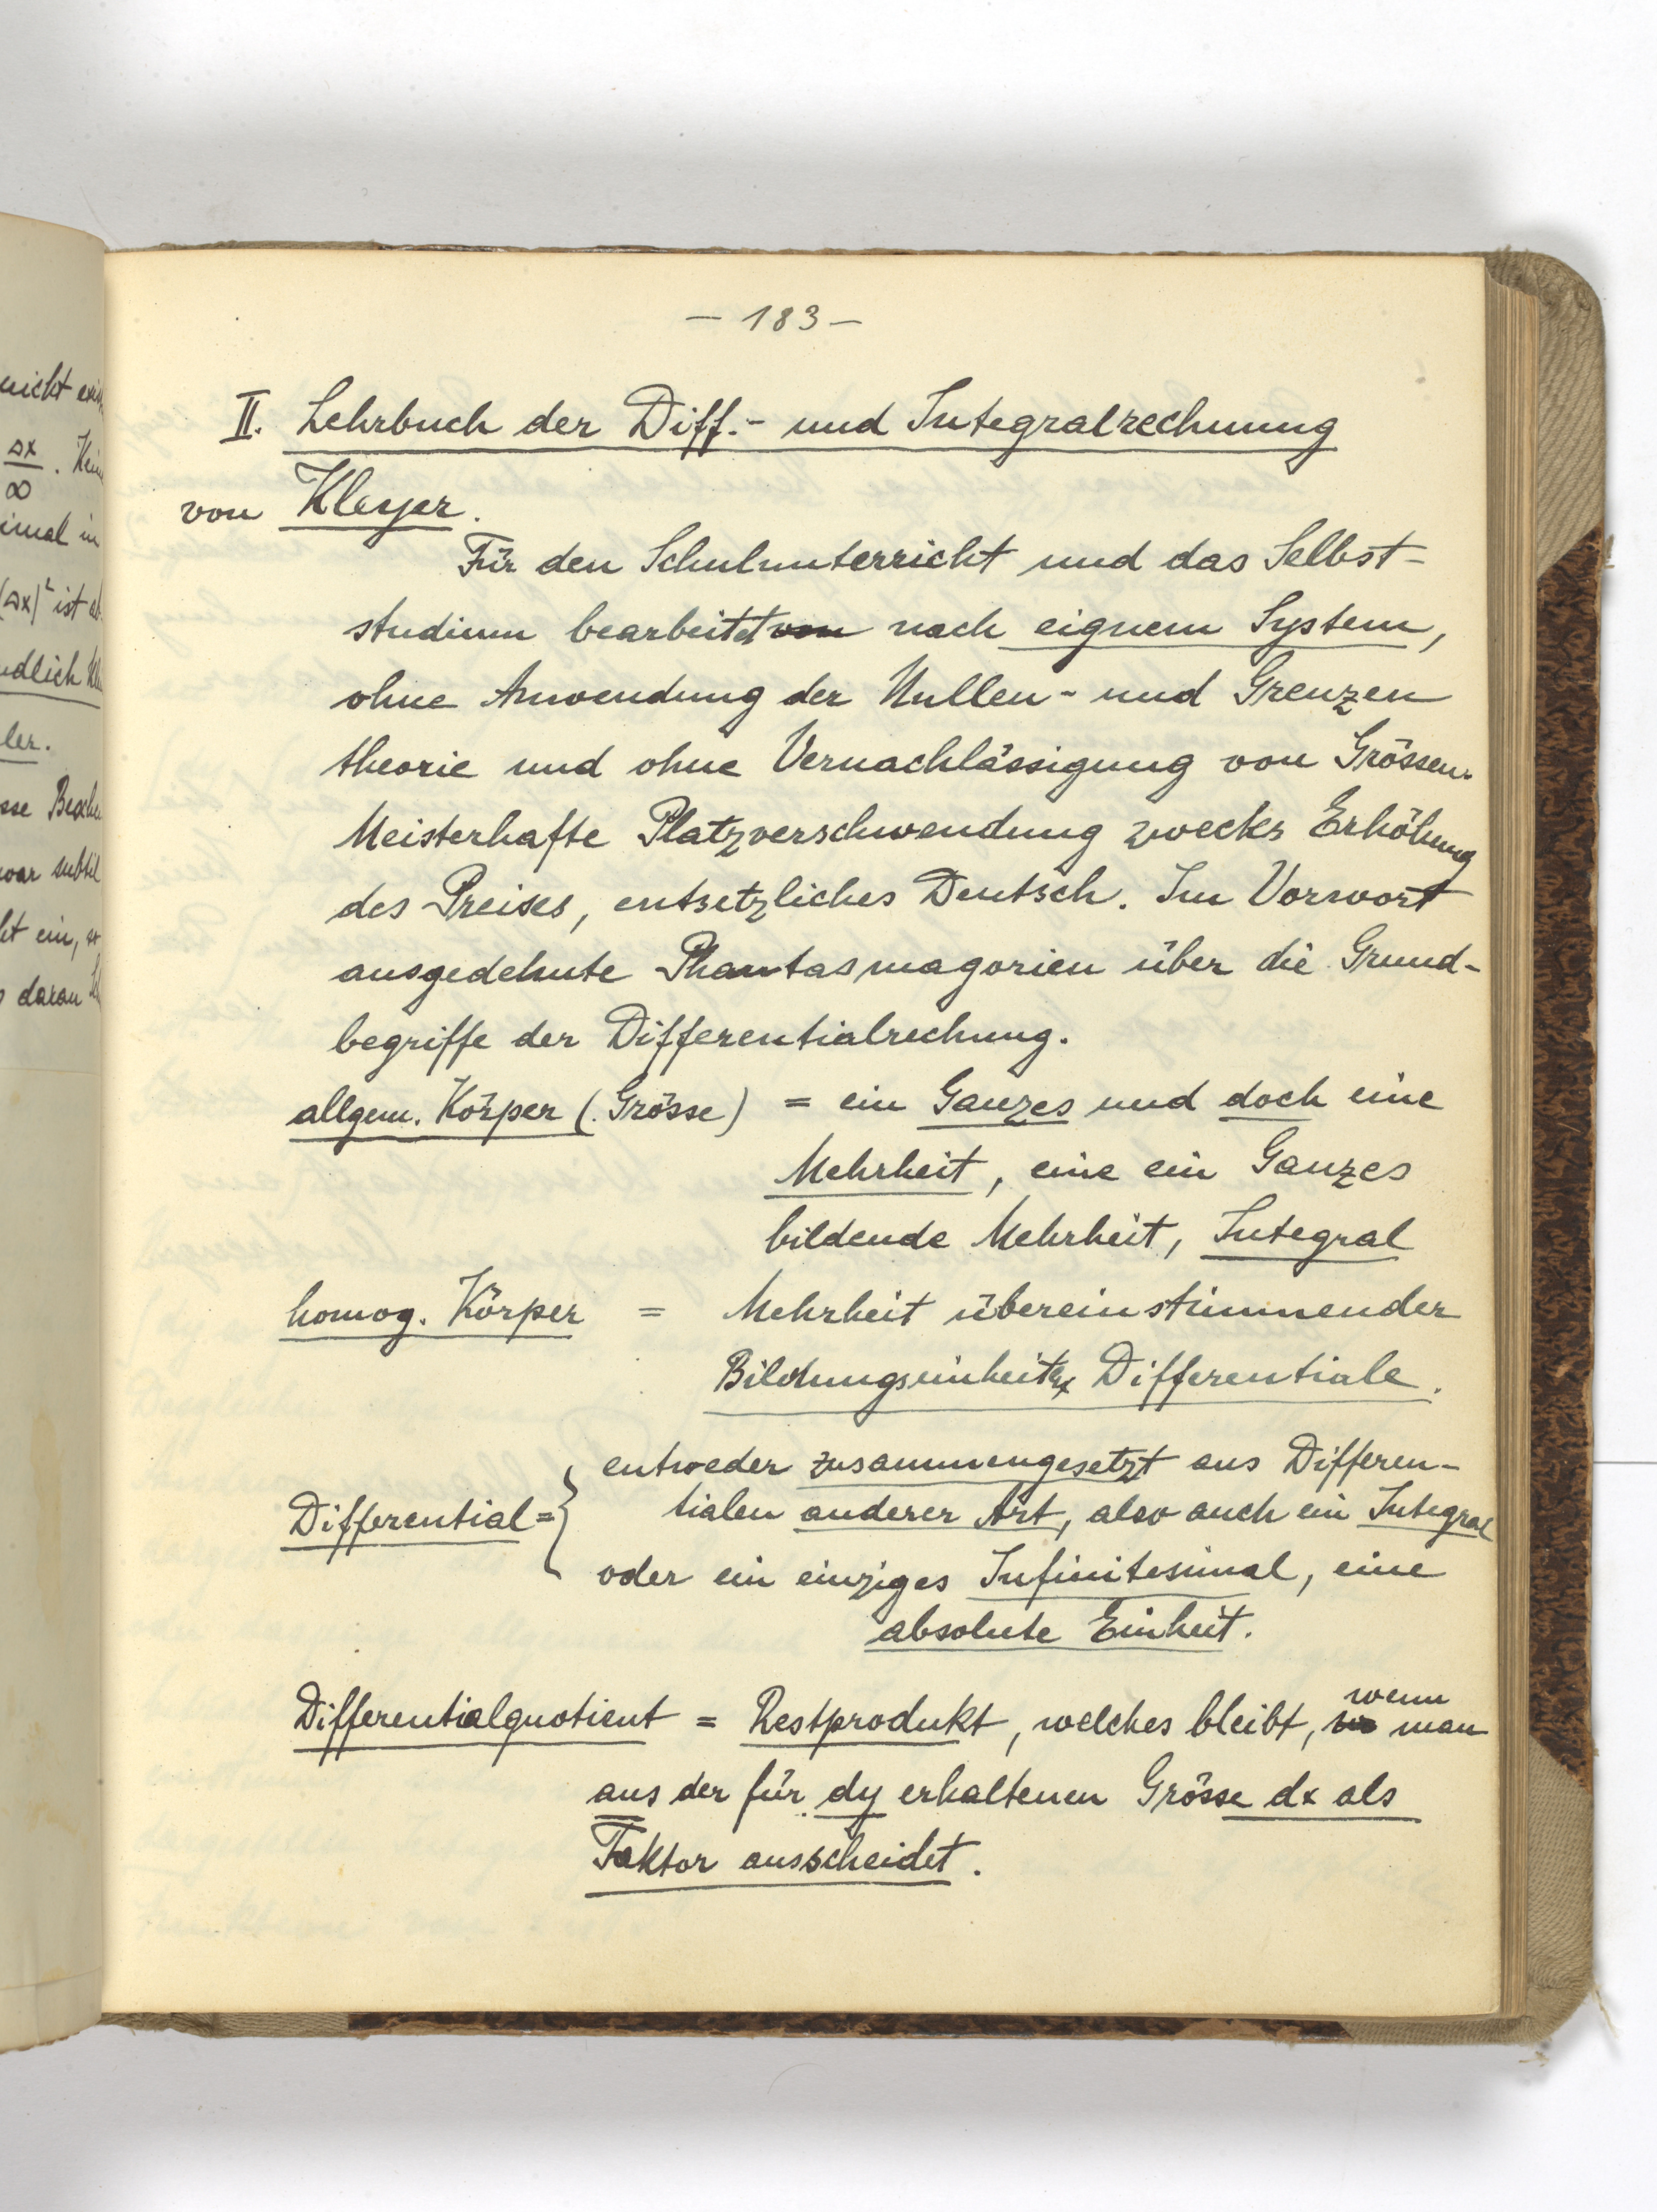 nicht
Δx
∞
(Δx)² ist
ler.
subtil
ein,
daran
– 183 –
II. Lehrbuch der Diff.- und Integralrechnung
von Kleyer.
Für den Schulunterricht und das Selbst-
studium bearbeitet von nach eignem System,
ohne Anwendung der Nullen- und Grenzen
theorie und ohne Vernachlässigung von Grössen.
Meisterhafte Platzverschwendung zwecks Erhöhung
des Preises, entsetzliches Deutsch. Im Vorwort
ausgedehnte Phantasmagorien über die Grund-
begriffe der Differentialrechung.
allgem. Körper (. Grösse) = ein Ganzes und doch eine
Mehrheit, eine ein Ganzes
bildende Mehrheit, Integral
homog. Körper = Mehrheit übereinstimmender
Bildungseinheiten Differentiale.
entweder zusammengesetzt aus Differen-
Differential = { tialen anderer Art, also auch ein Integral
oder ein einziges Infinitesimal, eine
absolute Einheit.
wenn
Differentialquotient = Restprodukt, welches bleibt, man
aus der für dy erhaltenen Grösse dx als
Faktor ausscheidet.